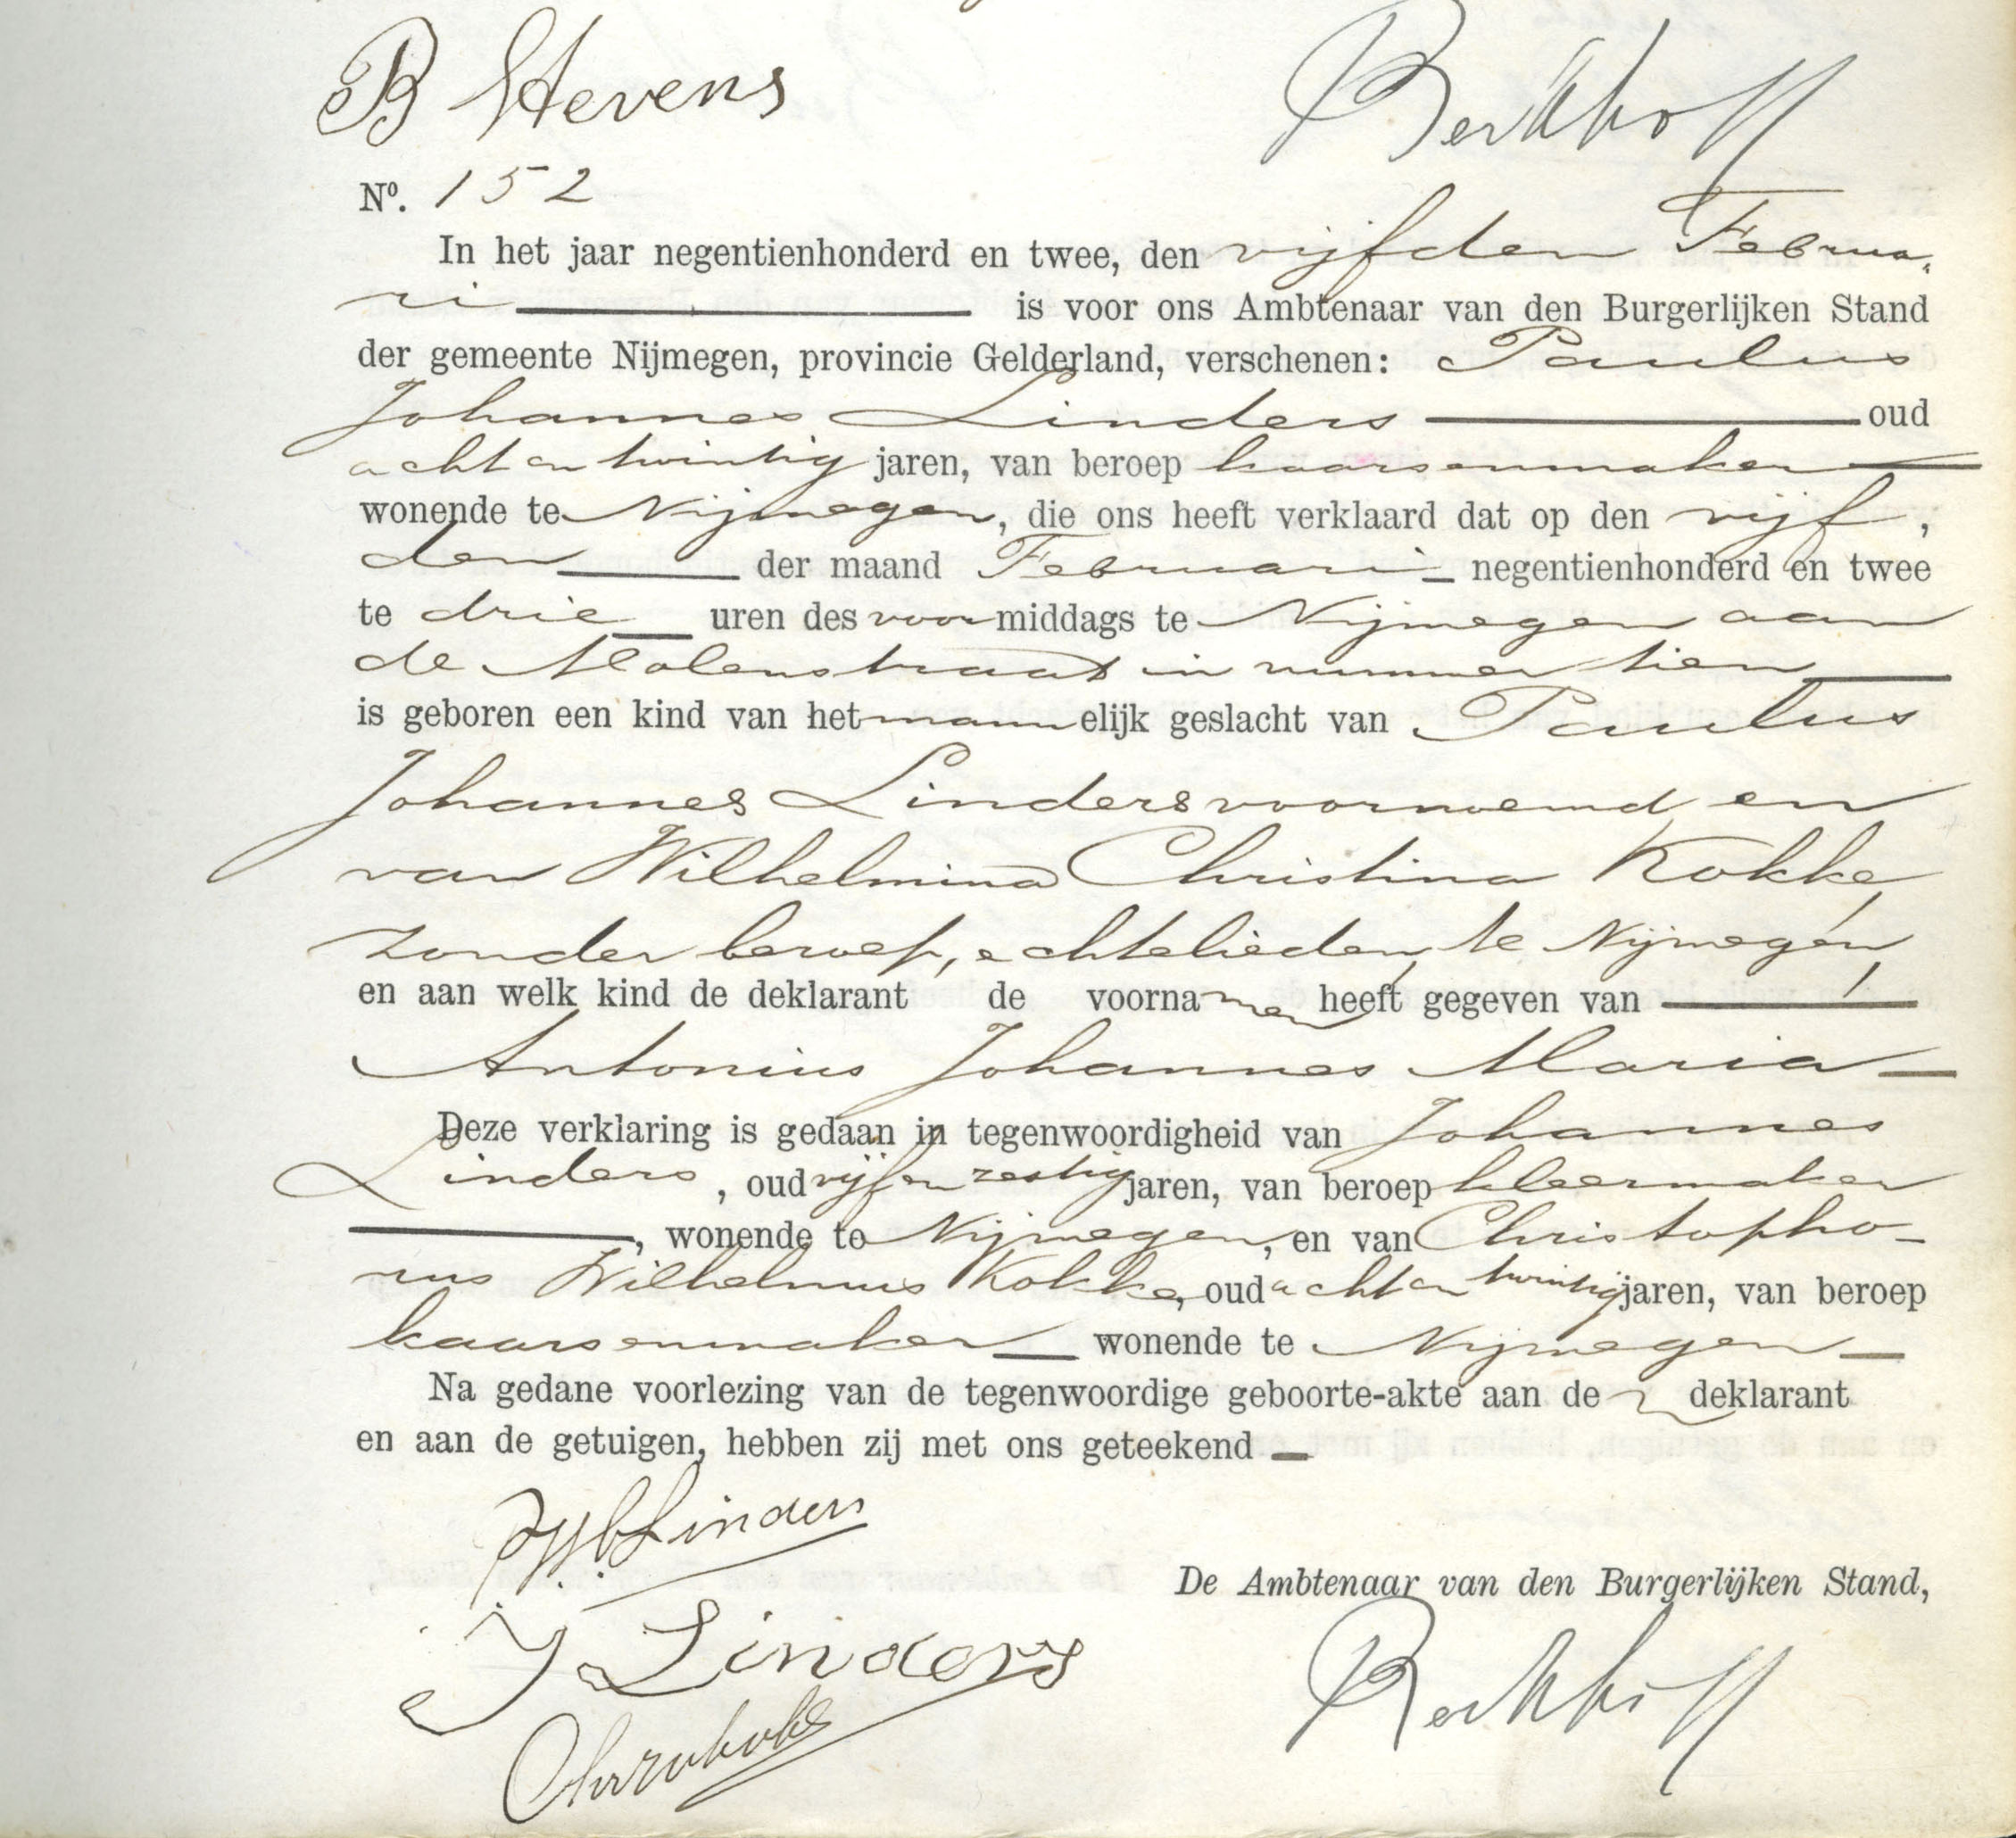 B Stevens
Berkhoff
Nº. 152
In het jaar negentienhonderd en twee, den vijfden Februa-
ri is voor ons Ambtenaar van den Burgerlijken Stand
der gemeente Nijmegen, provincie Gelderland, verschenen: Paulus
Johannes Linders oud
achtentwintig jaren, van beroep kaarsenmaker
wonende te Nijmegen, die ons heeft verklaard dat op den vijf,
den der maand Februari negentienhonderd en twee
te drie uren des voormiddags te Nijmegen aan
de Molenstraat in nummer tien
is geboren een kind van het mannelijk geslacht van Paulus
Johannes Linders voornoemd en
van Wilhelmina Christina Kokke,
zonder beroep, echtelieden, te Nijmegen
en aan welk kind de deklarant de voornamen heeft gegeven van
Antonius Johannes Maria
Deze verklaring is gedaan in tegenwoordigheid van Johannes
Linders, oud vijfenzestig jaren, van beroep kleermaker
, wonende te Nijmegen, en van Christopho-
rus Wilhelmus Kokke, oud achtentwintig jaren, van beroep
kaarsenmaker wonende te Nijmegen
Na gedane voorlezing van de tegenwoordige geboorte-akte aan de n deklarant
en aan de getuigen, hebben zij met ons geteekend
Linders
De Ambtenaar van den Burgerlijken Stand,
J Linders
Berkhoff